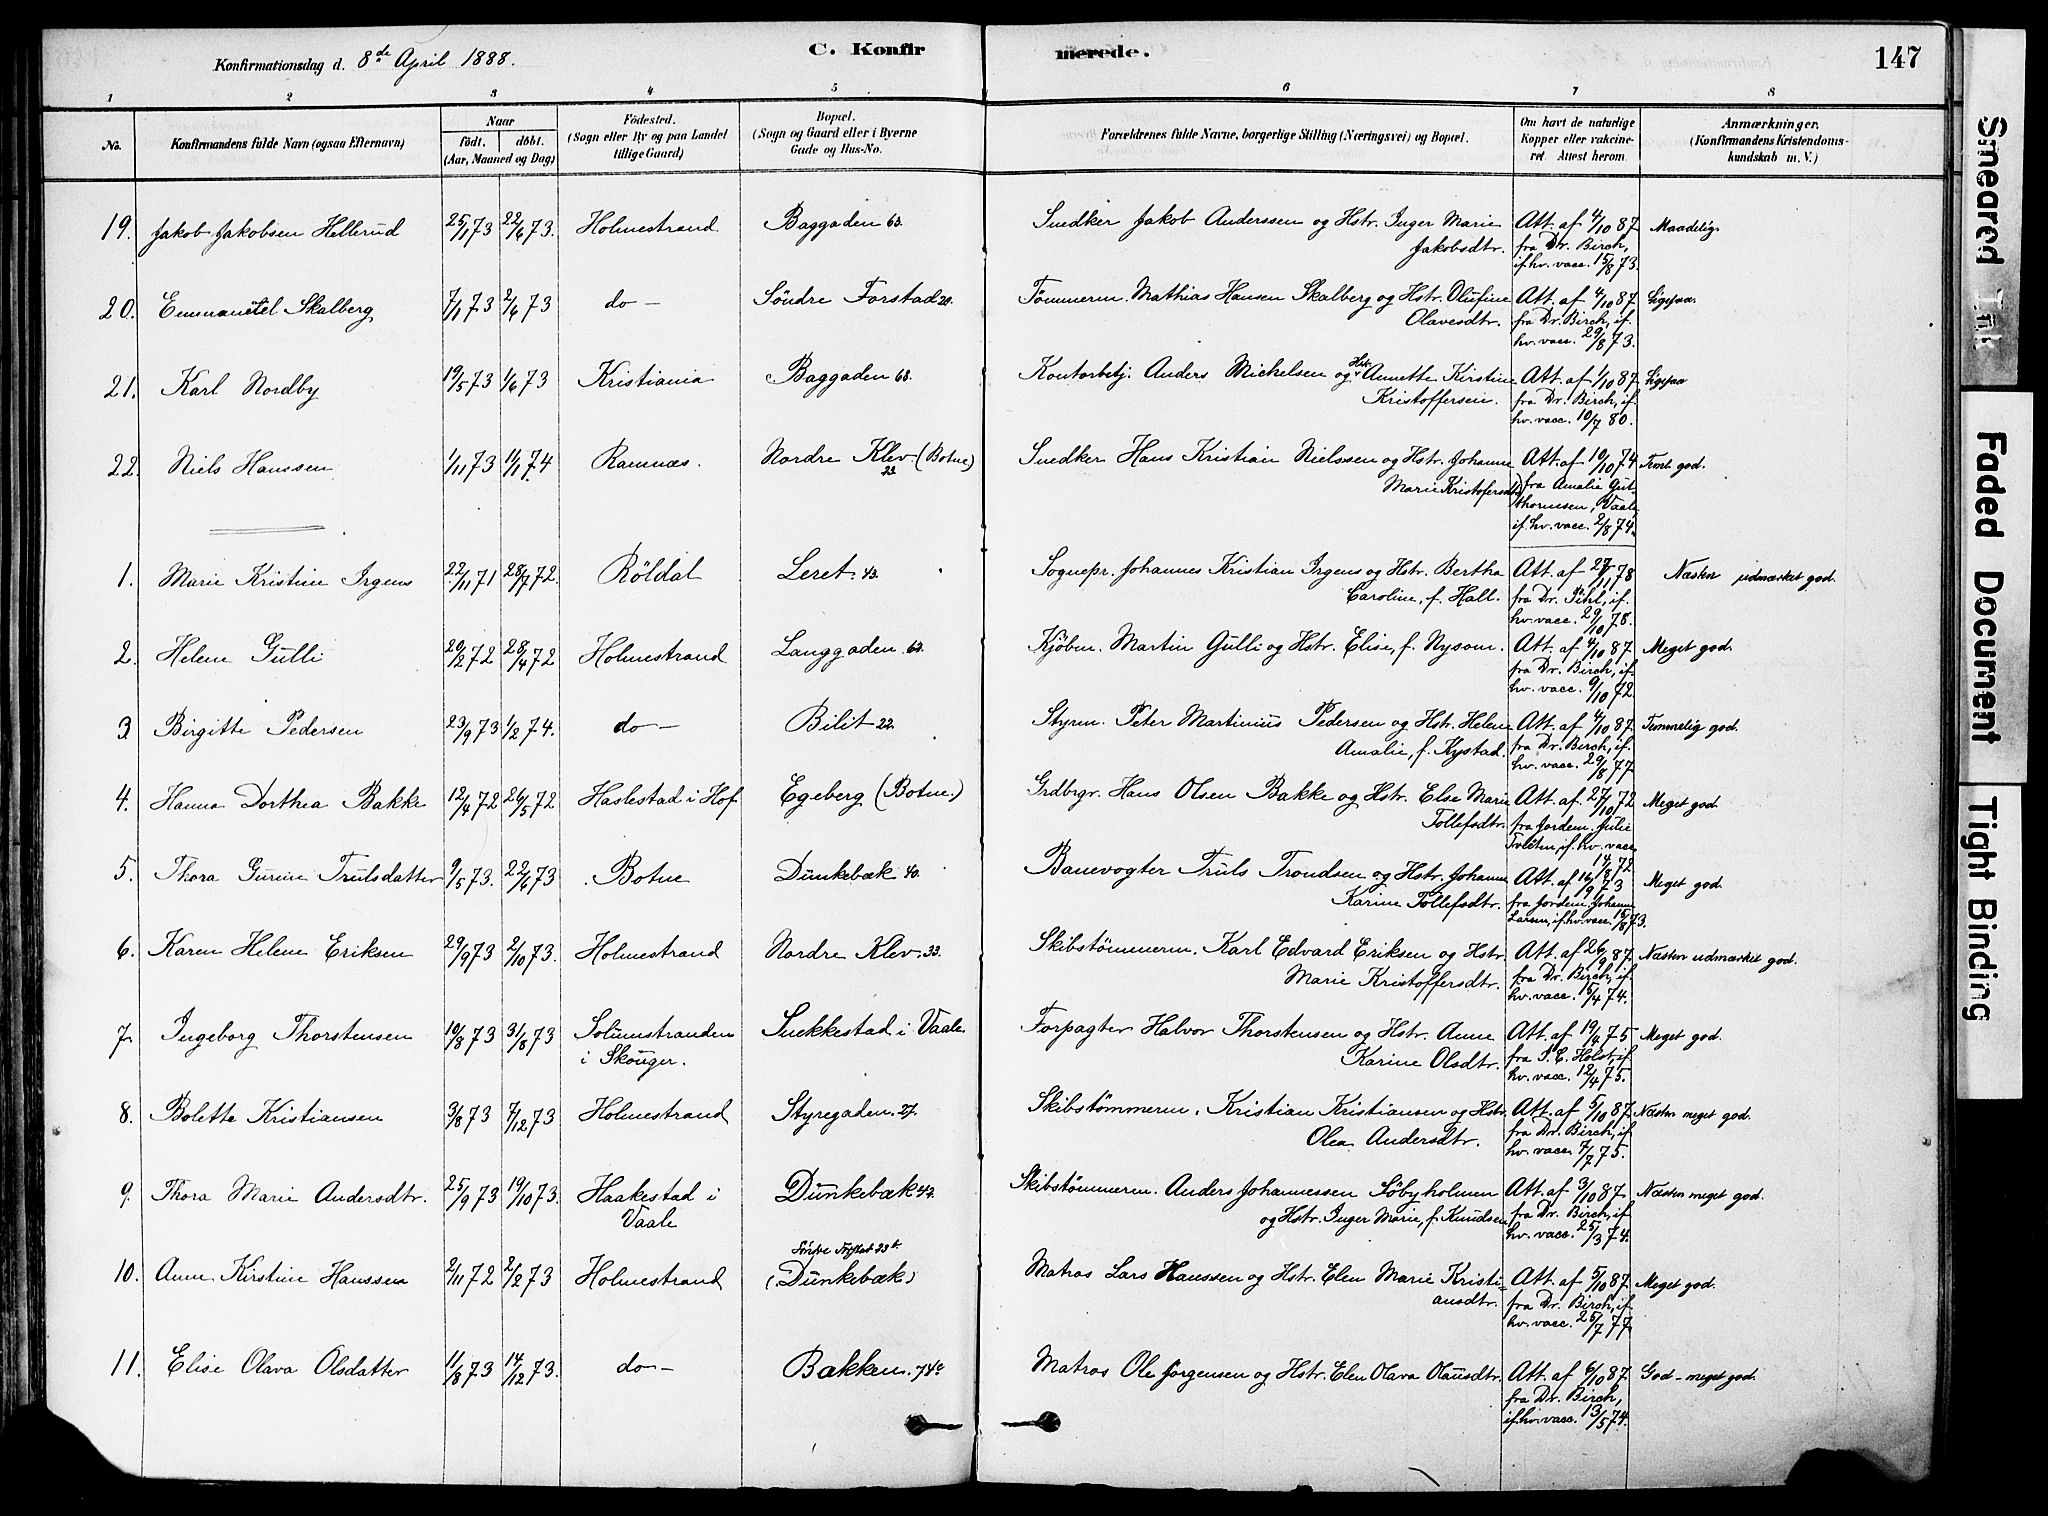 Konfirmationsdag d. 8de April 1888.
C. Konfir
merede.
147
1 2 3 4 5 6 7 8
No. Konfirmandens fulde Navn (ogsaa Efternavn) Naar født. døbt. (Aar, Maaned og Dag) Fødested. (Sogn eller By og paa Landet tillige Gaard) Bopæl. (Sogn og Gaard eller i Byerne Gade og Hus-No. Forældrenes fulde Navne, borgerlige Stilling (Næringsvei) og Bopæl. Om havt de naturlige Kopper eller vakcineret. Attest herom. Anmærkninger. (Konfirmandens Kristendomskundskab m. V.)
19. Jakob Jakobsen Hellerud 25/1 73 22/6 73. Holmestrand Baggaden 63. Snedker Jakob Anderssen og Hstr. Inger Marie Att. af 4/10 87 Maadelig
Jakobsdtr. fra Dr. Birch,
if. hv. vacc. 15/8 73.
20. Emmanuel Skalberg 7/1 73 2/6 73 do — Søndre Forstad 20. Tømmerm. Mathias Hansen Skalberg og Hstr. Olufine Att. af 4/10 87 Ligesaa
Olavesdtr. fra Dr. Birch, if.
hv. vacc. 29/8 73.
21. Karl Nordby 19/5 73 1/6 73 Kristiania Baggaden 68. Kontorbetj. Anders Michelsen og Hstr. Annette Kirstine Att. af 1/10 87 Ligesaa
Kristoffersen. fra Dr. Birch, if
hv. vacc. 10/7 80.
22. Niels Hanssen 1/11 73 11/1 74 Ramnæs. Nordre Klev (Botne) 23 Snedker Hans Kristian Nielssen og Hstr. Johanne Att. af 10/10 74 Teml. god.
Marie Kristofersdtr fra Amalie Gut-
thormsen, Vaale
if. hv. vacc. 2/8 74.
1. Marie Kristine Irgens 22/11 71 28/7 72. Røldal Leret. 43. Sognepr. Johannes Kristian Irgens og Hstr. Bertha Att. af 27/11 78 Næsten udmærket god.
Caroline, f. Hall. fra Dr. Pihl, if.
hv. vacc. 29/10 78.
2. Helene Gulli 20/2 72 28/4 72 Holmestrand Langgaden 63. Kjøbm. Martin Gulli og Hstr. Elise, f. Nysom. Att. af 4/10 87 Meget god.
fra Dr. Birch, if
hv. vacc. 9/10 72.
3. Birgitte Pedersen 23/9 73 1/2 74. do — Bilit 22. Styrm. Peter Martinius Pedersen og Hstr. Helene Att. af 4/10 87. Temmelig god.
Amalie, f. Kystad. fra Dr. Birch, if.
hv. vacc. 29/8 77.
4. Hanna Dorthea Bakke 12/4 72 26/5 72 Haslestad i Hof Egeberg (Botne.) Grdbrgr. Hans Olsen Bakke og Hstr. Else Marie Att. af 27/10 72 Meget god.
Tollefsdtr. fra Jordem. Julie
Tveiten, if. hv. vacc.
14/8 72
5. Thora Gurine Trulsdatter 9/5 73. 22/6 73 Botne Dunkebæk 40. Banevogter Truls Trondsen og Hstr. Johanne Att. af 16/9 73 Meget god.
Karine Tollefsdtr. fra Jordem. Johanne
Larsen, if. hv. vacc. 15/8 73.
6. Karen Helene Eriksen 29/9 73 2/10 73. Holmestrand Nordre Klev. 33. Skibstømmerm. Karl Edvard Eriksen og Hstr Att. af 26/9 87. Næsten udmærket god.
Marie Kristoffersdtr. fra Dr. Birch, if
hv. vacc. 15/4 74.
7. Ingeborg Thorstensen 10/8 73 31/8 73 Solumstranden Snekkestad i Vaale Forpagter Halvor Thorstensen og Hstr. Anne Att. af 19/4 75 Meget god.
i Skouger. Karine Olsdtr. fra P. E. Holst, if
hv. vacc. 12/4 75.
8. Bolette Kristiansen 3/8 73 7/12 73 Holmestrand Styregaden. 27. Skibstømmerm. Kristian Kristiansen og Hstr. Att. af 5/10 87. Næsten meget god.
Olea Andersdtr. fra Dr. Birch, if
hv. vacc. 7/7 75.
9. Thora Marie Andersdtr. 25/9 73 19/10 73. Haakestad i Dunkebæk 42. Skibstømmerm. Anders Johannessen Søbyholmen Att. af 3/10 87. Næsten meget god.
Vaale og Hstr. Inger Marie, f. Knudsen fra Dr. Birch, if
hv. vacc. 25/3 74.
Søndre Forstad 23 b.
10. Anne Kirstine Hanssen 2/11 72 2/2 73 Holmestrand (Dunkebæk) Matros Lars Hanssen og Hstr. Elen Marie Kristi- Att. af 5/10 87. Meget god.
ansdtr. fra Dr. Birch, if
hv. vacc. 25/7 77.
11. Elise Olava Olsdatter 11/8 73 14/12 73. do — Bakken. 74c Matros Ole Jørgensen og Hstr. Elen Olava Olausdtr. Att. af 6/10 87. God – meget god.
fra Dr. Birch,
if. hv. vacc. 13/5 74.
Smeared Ink
Faded Document
Tight Binding